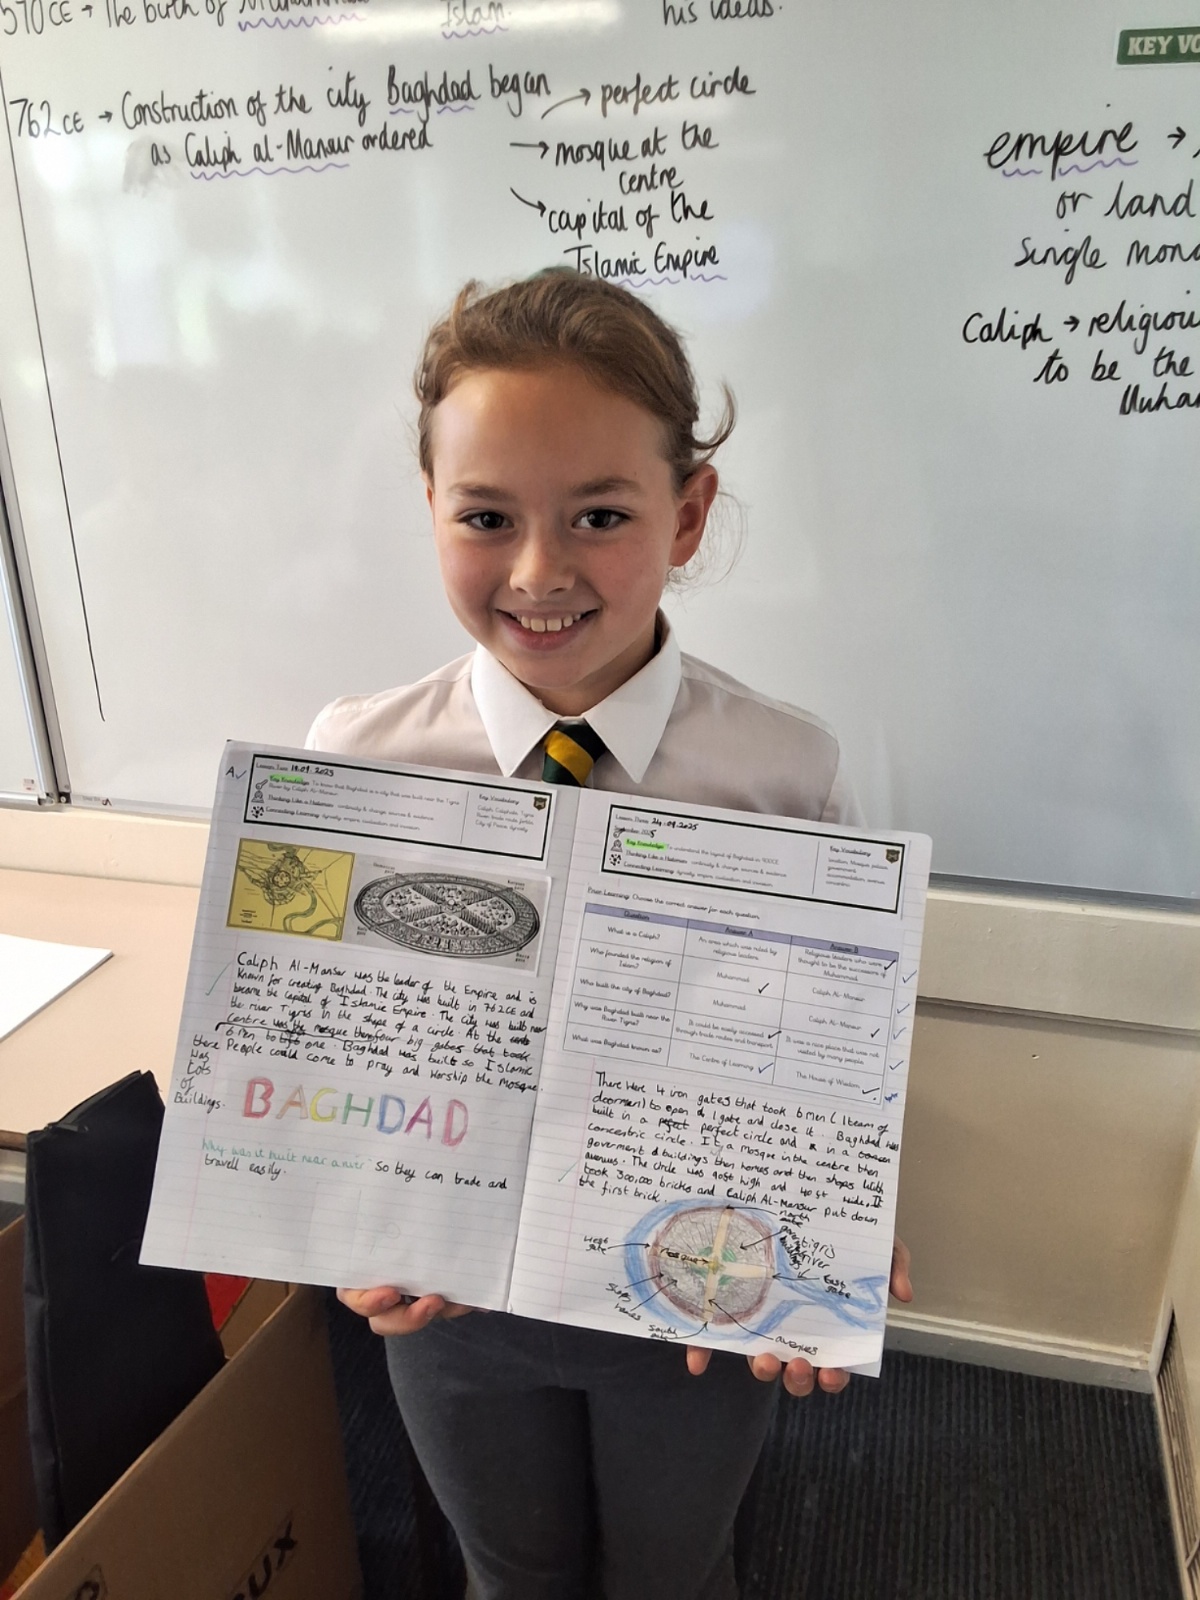 570 CE → The birth of
Islam.
his ideas.
KEY VO
762 CE → Construction of the city Baghdad began
as Caliph al-Mansur ordered
→ perfect circle
→ mosque at the
centre
→ capital of the
Islamic Empire
empire →
or land
Single mona
Caliph → religiou
to be the
Muham
A
Lesson Two: 18.09.2025
Key Knowledge: To know that Baghdad is a city that was built near the Tigris
River by Caliph Al-Mansur.
Thinking Like a Historian: continuity & change, sources & evidence
Connecting Learning: dynasty, empire, civilisation and invasion.
Key Vocabulary
Caliph, Caliphate, Tigris
City of Peace, dynasty
Caliph Al-Mansur was the leader of the Empire and is
known for creating Baghdad. The city was built in 762CE and
became the capital of Islamic Empire. The city was built near
the river Tigres in the shape of a circle. At the
centre was the mosque there four big gates that took
6 men to one. Baghdad was built so Islamic
People could come to pray and worship the mosque.
there
was
Lots
of
Buildings.
BAGHDAD
Why was it built near a river so they can trade and
travell easily.
24.09.2025
Key Knowledge: To understand the layout of Baghdad in 900CE.
Thinking Like a Historian: continuity & change, sources & evidence
Connecting Learning: dynasty, empire, civilisation and invasion.
Key Vocabulary
location, Mosque, palace,
government,
accommodation, avenue,
concentric
Prior Learning: Choose the correct answer for each question.
Question
Answer A
Answer B
What is a Caliph?
An area which was ruled by
religious leaders.
Religious leaders who were
thought to be the successors of
Muhammad.
Who founded the religion of
Islam?
Muhammad
Caliph Al-Mansur
Who built the city of Baghdad?
Muhammad
Caliph Al-Mansur
Why was Baghdad built near the
River Tigris?
It could be easily accessed
through trade routes and transport.
It was a nice place that was not
visited by many people.
What was Baghdad known as?
The Centre of Learning
The House of Wisdom
There were 4 iron gates that took 6 men (1 team of
doormen) to open 1 gate and close it. Baghdad was
built in a perfect circle and in a
concentric circle. It a mosque in the centre then
goverment buildings then homes and then shops with
avenues. The circle was 90ft high and 40ft wide. It
took 300,000 bricks and Caliph Al-Mansur put down
the first brick.
north
gate
West
gate
mosque
tigris
river
East
gate
shops
homes
south
avenues
UX